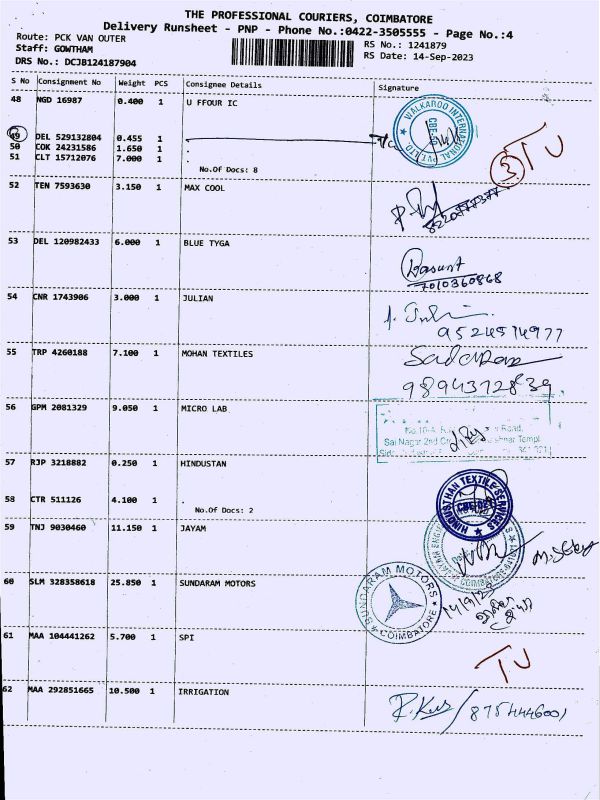 THE PROFESSIONAL COURIERS, COIMBATORE
Delivery Runsheet - PNP - Phone No.:0422-3505555 - Page No.:4
Route: PCK VAN OUTER
RS No.: 1241879
Staff: GOWTHAM
RS Date: 14-Sep-2023
DRS No.: DCJB124187904
S No Consignment No Weight PCS Consignee Details Signature
48 NGD 16987 0.400 1 U FFOUR IC
WALKAROO INTERNATIONAL PVT LTD
49 DEL 529132804 0.455 1 .
50 COK 24231586 1.650 1 .
51 CLT 15712076 7.000 1 .
3 TU
No.Of Docs: 8
52 TEN 7593630 3.150 1 MAX COOL
53 DEL 120982433 6.000 1 BLUE TYGA
7010360868
54 CNR 1743906 3.000 1 JULIAN
9524514977
55 TRP 4260188 7.100 1 MOHAN TEXTILES
9894372839
56 GPM 2081329 9.050 1 MICRO LAB
Road,
Sai Nagar 2nd
57 RJP 3218882 0.250 1 HINDUSTAN
58 CTR 511126 4.100 1 .
No.Of Docs: 2
HINDUSTHAN TEXTILE SERVICES
59 TNJ 9030460 11.150 1 JAYAM
60 SLM 328358618 25.850 1 SUNDARAM MOTORS
SUNDARAM MOTORS
COIMBATORE
14/9/23
61 MAA 104441262 5.700 1 SPI
TU
62 MAA 292851665 10.500 1 IRRIGATION